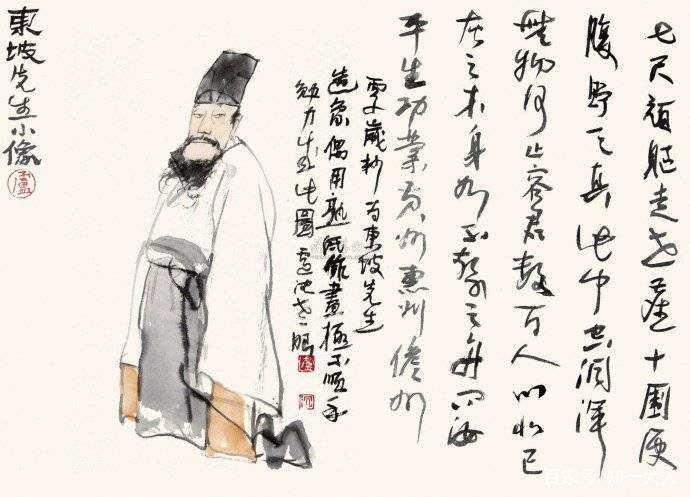 七尺頑軀走世塵十圍便
腹貯天真此中空洞渾
無物何止容君數百人心似已
灰之木身如不繫之舟問汝
平生功業黃州惠州儋州
歲杪為東坡先生
造象偶用熟紙作畫極不順手
勉力成此圖
東坡先生小像
盧